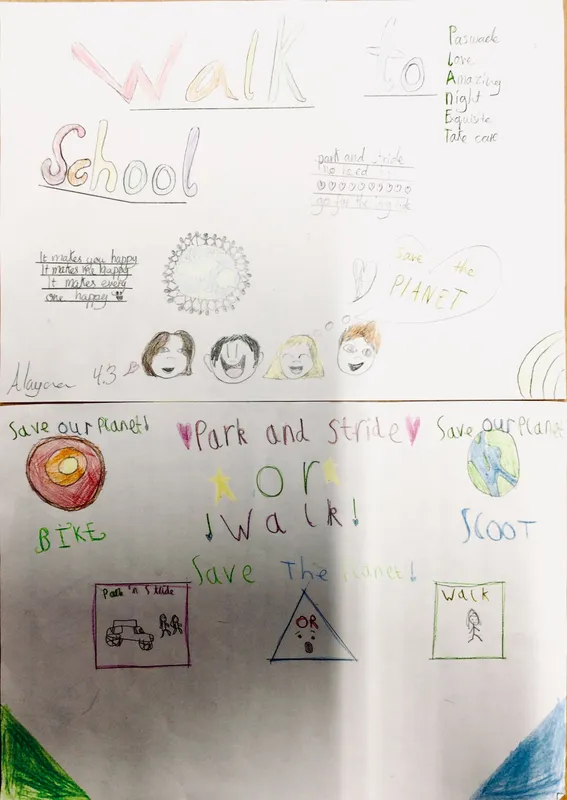 Walk to
School
Paswade
Love
Amazing
Night
Equisite
Take care
park and stride
go for the
It makes you happy
It makes me happy
It makes every
one happy
Save the
PLANET
4.3
Save our planet!
Park and Stride
Save our Planet
or
! Walk !
BIKE
SCOOT
Save The Planet!
Park 'n Stride
OR
Walk